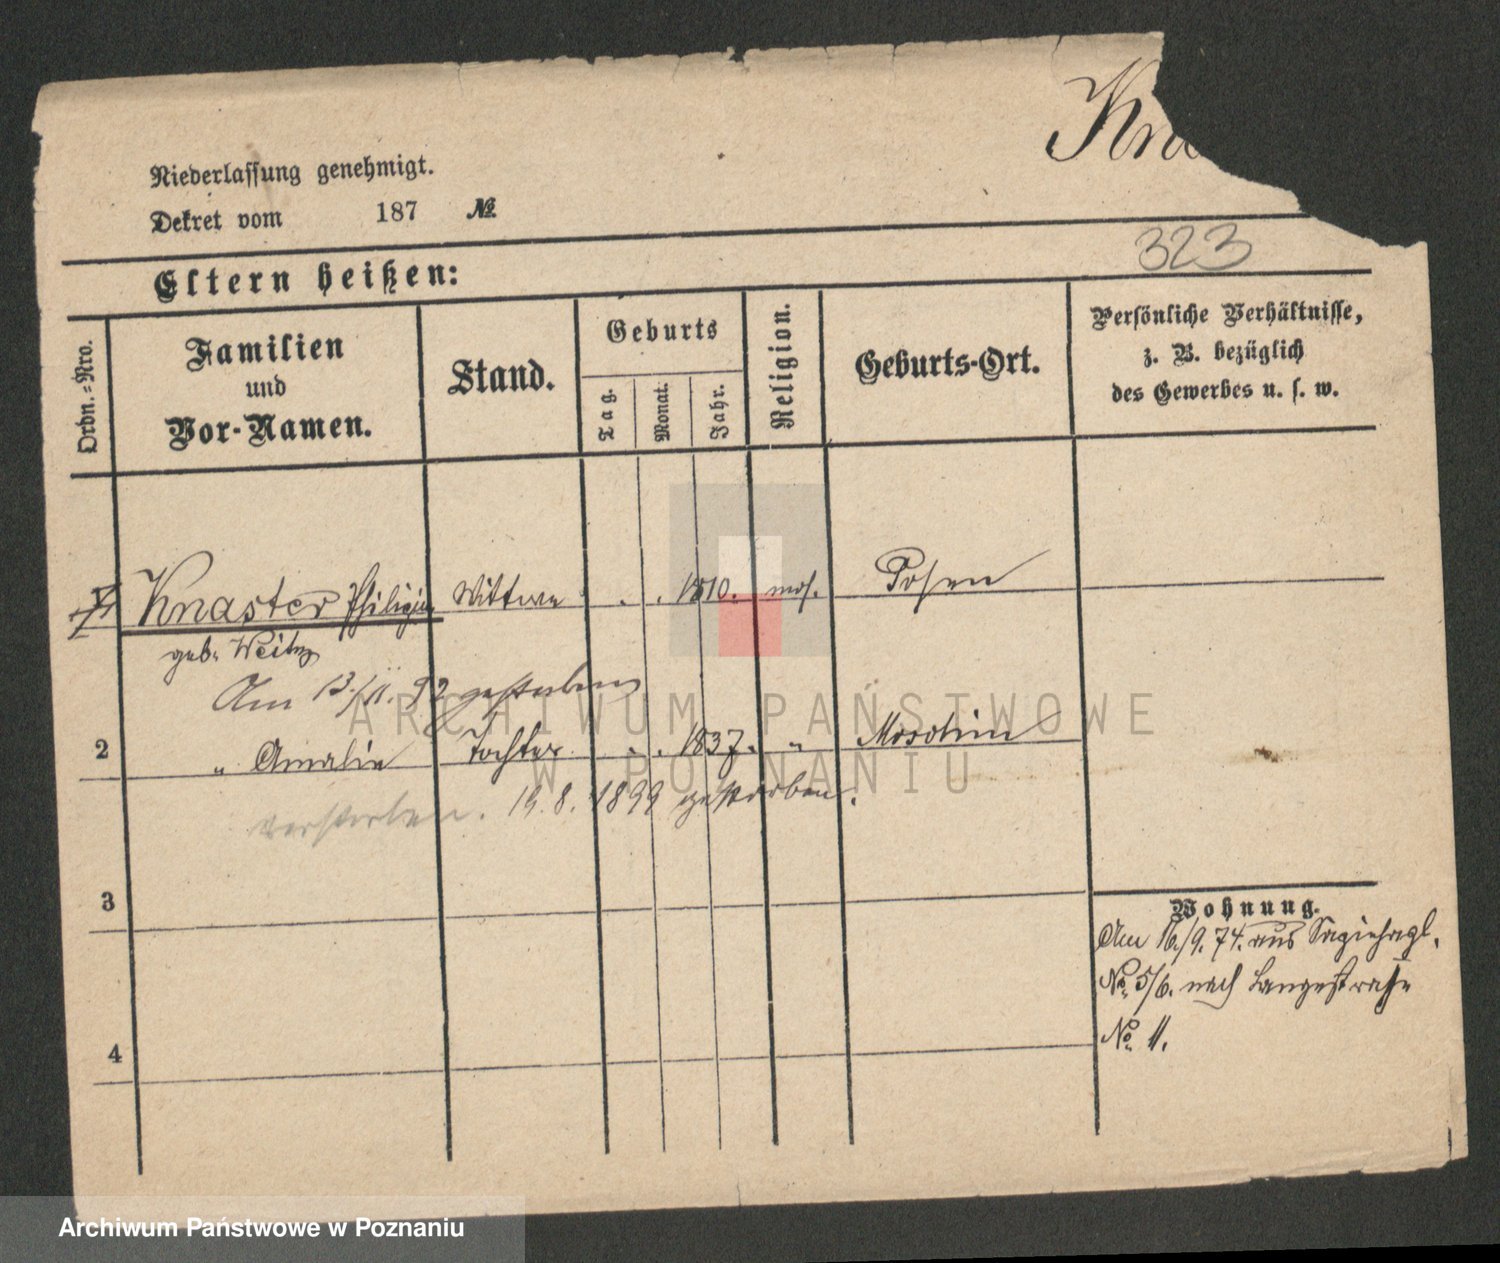 Kna
Niederlassung genehmigt.
Dekret vom 187 №
323
Eltern heißen:
Ordn.-Nro.
Familien
und
Vor-Namen.
Stand.
Geburts
Tag.
Monat.
Jahr.
Religion.
Geburts-Ort.
Persönliche Verhältnisse,
z. B. bezüglich
des Gewerbes u. s. w.
1 Knaster Wittwe . . 1810. mos. Posen
geb. Weitz
Am 13./11. 92 gestorben
2 " Amalie Tochter . . 1837. " Moschin
verstorben. 19. 8. 1899 gestorben.
3
4
Wohnung.
Am 16/9. 74. aus
No. 5/6. nach Langestraße
No. 11.
ARCHIWUM PAŃSTWOWE
W POZNANIU
Archiwum Państwowe w Poznaniu